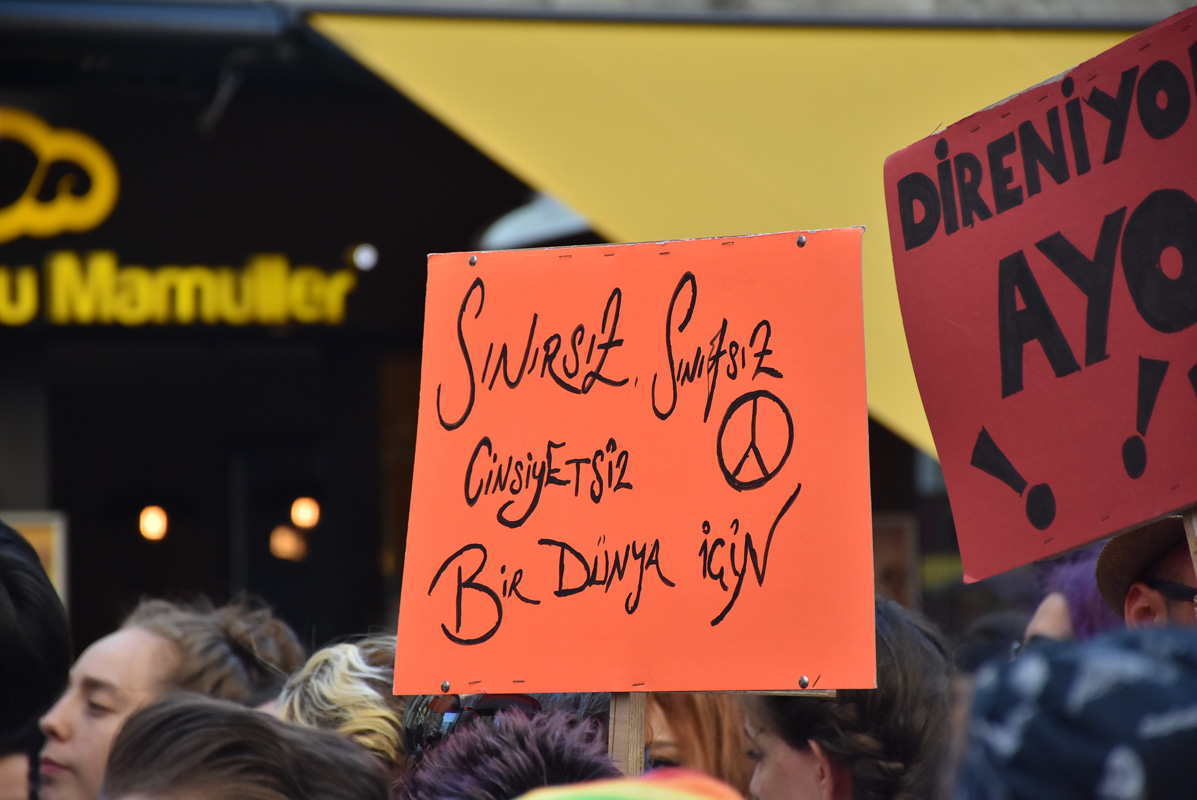 u Mamuller
SINIRSIZ, SINIFSIZ
CİNSİYETSİZ
BİR DÜNYA İÇİN
DİRENİYO
AYO
! !